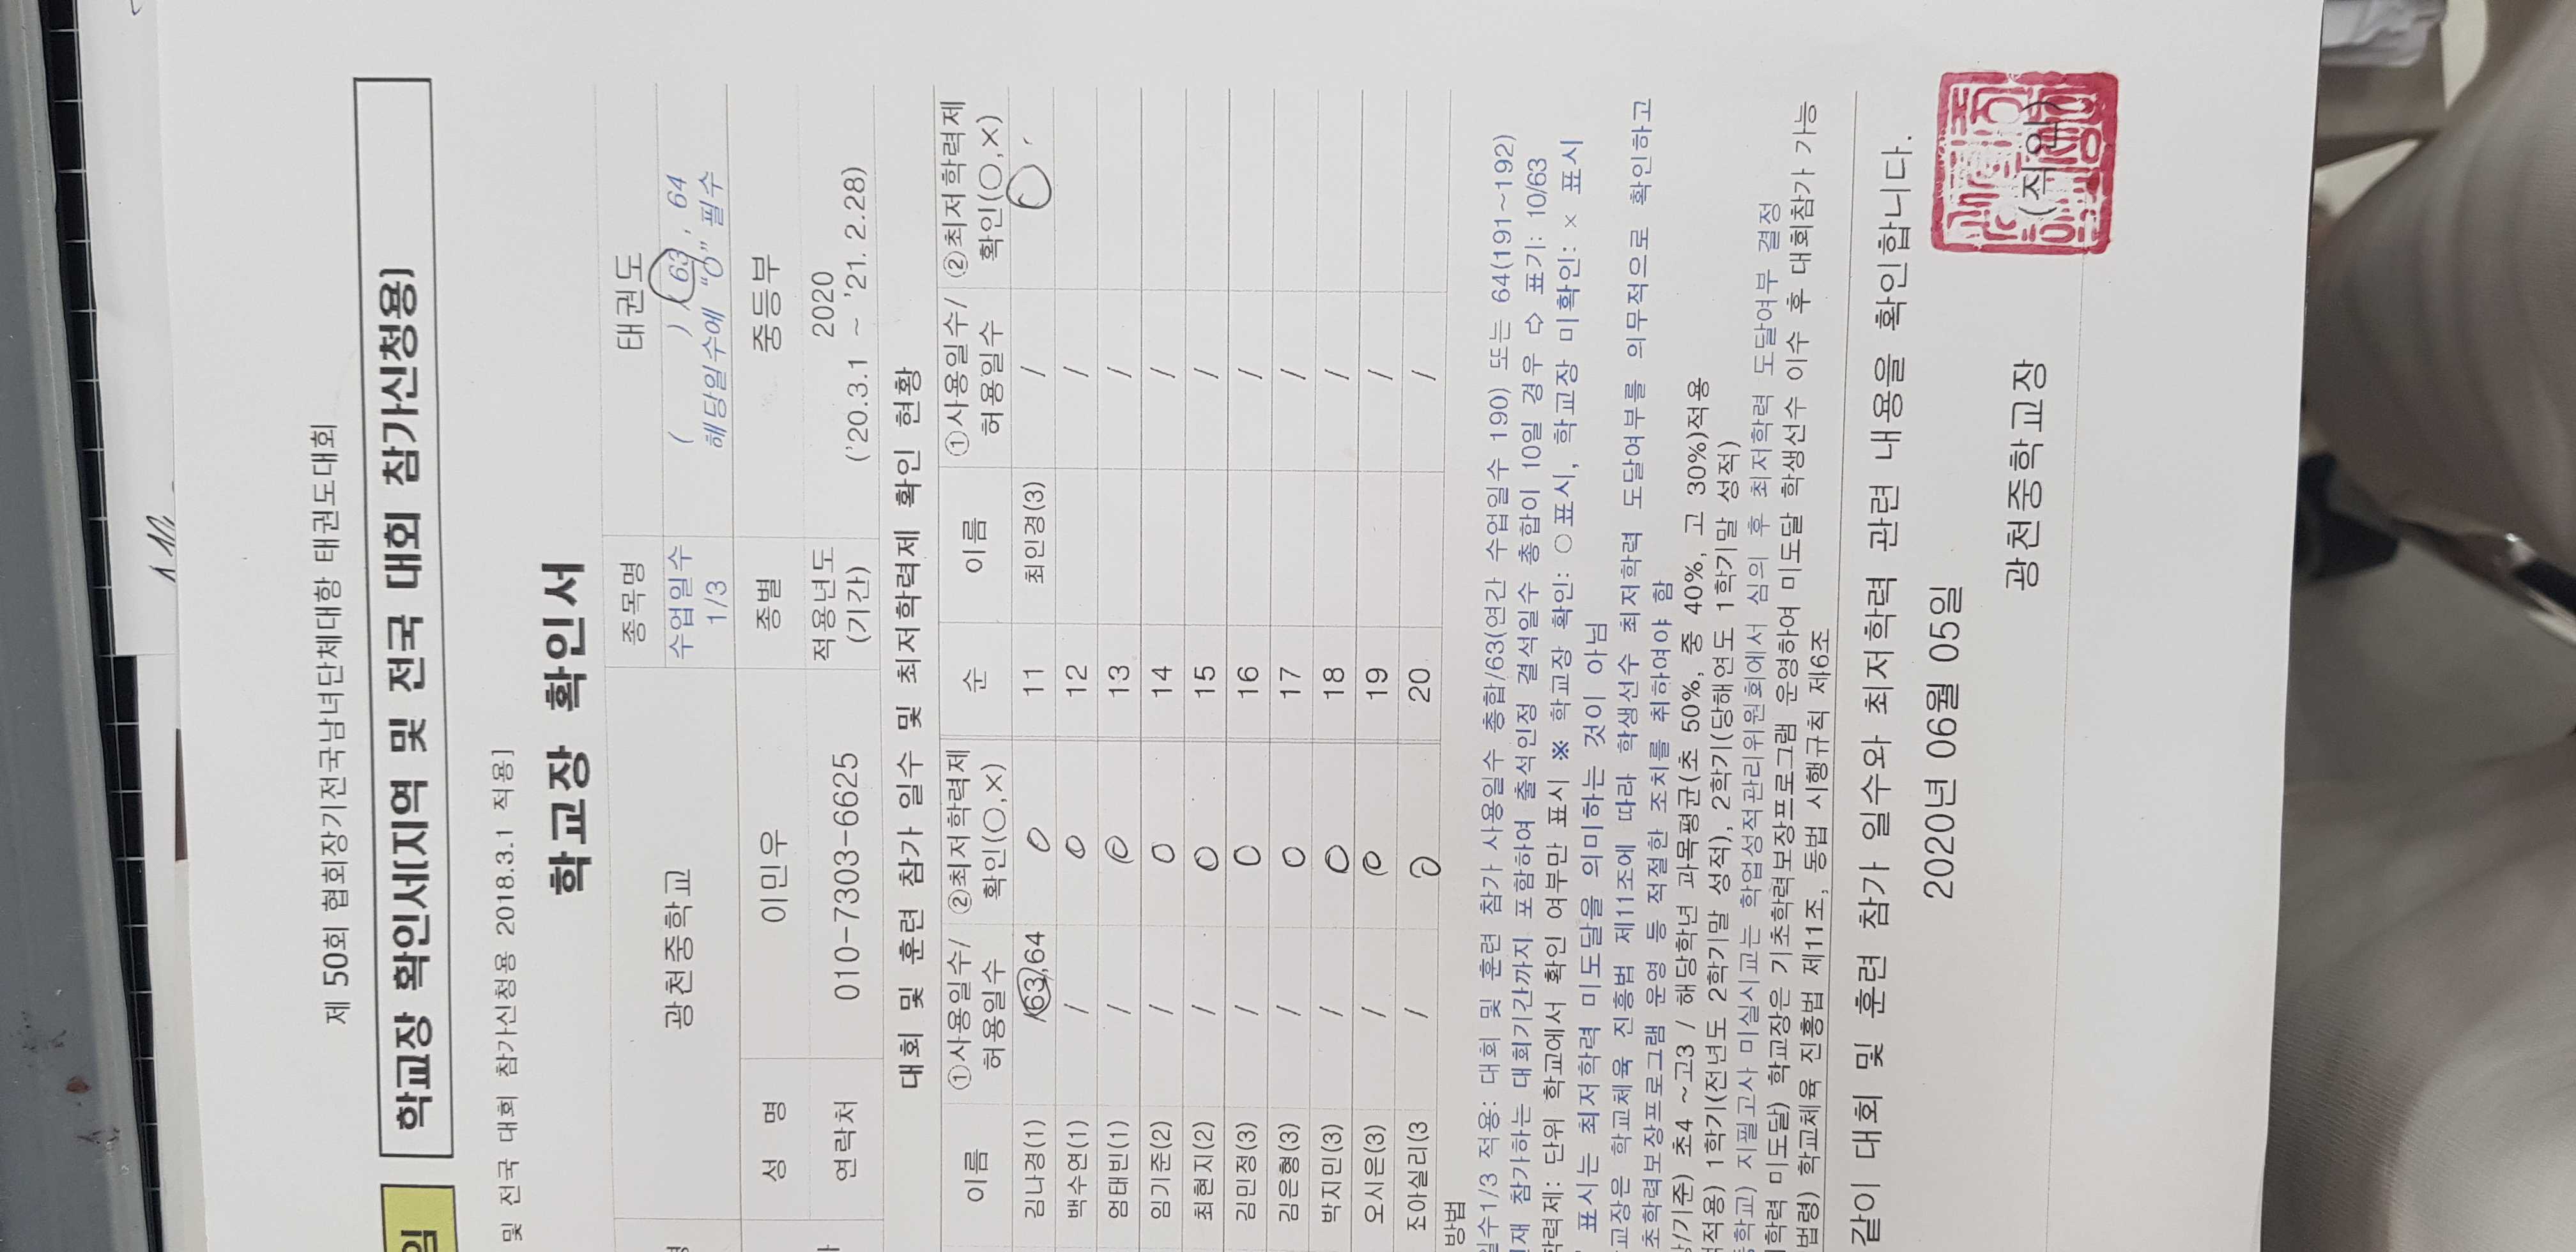 제 50회 협회장기전국남녀단체대항 태권도대회
임 학교장 확인서(지역 및 전국 대회 참가신청용)
및 전국 대회 참가신청용 2018.3.1 적용]
학교장 확인서
광천중학교 종목명 태권도
수업일수 1/3 ( ) / 63, 64
해당일수에 "O" 필수
성 명 이민우 종별 중등부
연락처 010-7303-6625 적용년도 (기간) 2020
('20.3.1 ~ '21. 2.28)
대회 및 훈련 참가 일수 및 최저학력제 확인 현황
이름 ①사용일수/허용일수 ②최저학력제 확인(○,×) 순 이름 ①사용일수/허용일수 ②최저학력제 확인(○,×)
김나경(1) /63,64 O 11 최인경(3) / O
백수연(1) / O 12 /
엄태빈(1) / O 13 /
임기준(2) / O 14 /
최현지(2) / O 15 /
김민정(3) / O 16 /
김은형(3) / O 17 /
박지민(3) / O 18 /
오시은(3) / O 19 /
조아실리(3 / O 20 /
방법
일수1/3 적용: 대회 및 훈련 참가 사용일수 총합/63(연간 수업일수 190) 또는 64(191~192)
참가하는 대회기간까지 포함하여 출석인정 결석일수 총합이 10일 경우 ⇨ 표기: 10/63
학력제: 단위 학교에서 확인 여부만 표시 ※ 학교장 확인: ○ 표시, 학교장 미확인: × 표시
표시는 최저학력 미도달을 의미하는 것이 아님
교장은 학교체육 진흥법 제11조에 따라 학생선수 최저학력 도달여부를 의무적으로 확인하고
초학력보장프로그램 운영 등 적절한 조치를 취하여야 함
/기준) 초4 ~고3 / 해당학년 과목평균(초 50%, 중 40%, 고 30%)적용
적용) 1학기(전년도 2학기말 성적), 2학기(당해연도 1학기말 성적)
학교) 지필고사 미실시교는 학업성적관리위원회에서 심의 후 최저학력 도달여부 결정
학력 미도달) 학교장은 기초학력보장프로그램 운영하여 미도달 학생선수 이수 후 대회참가 가능
법령) 학교체육 진흥법 제11조, 동법 시행규칙 제6조
같이 대회 및 훈련 참가 일수와 최저학력 관련 내용을 확인합니다.
2020년 06월 05일
광천중학교장 (직인)